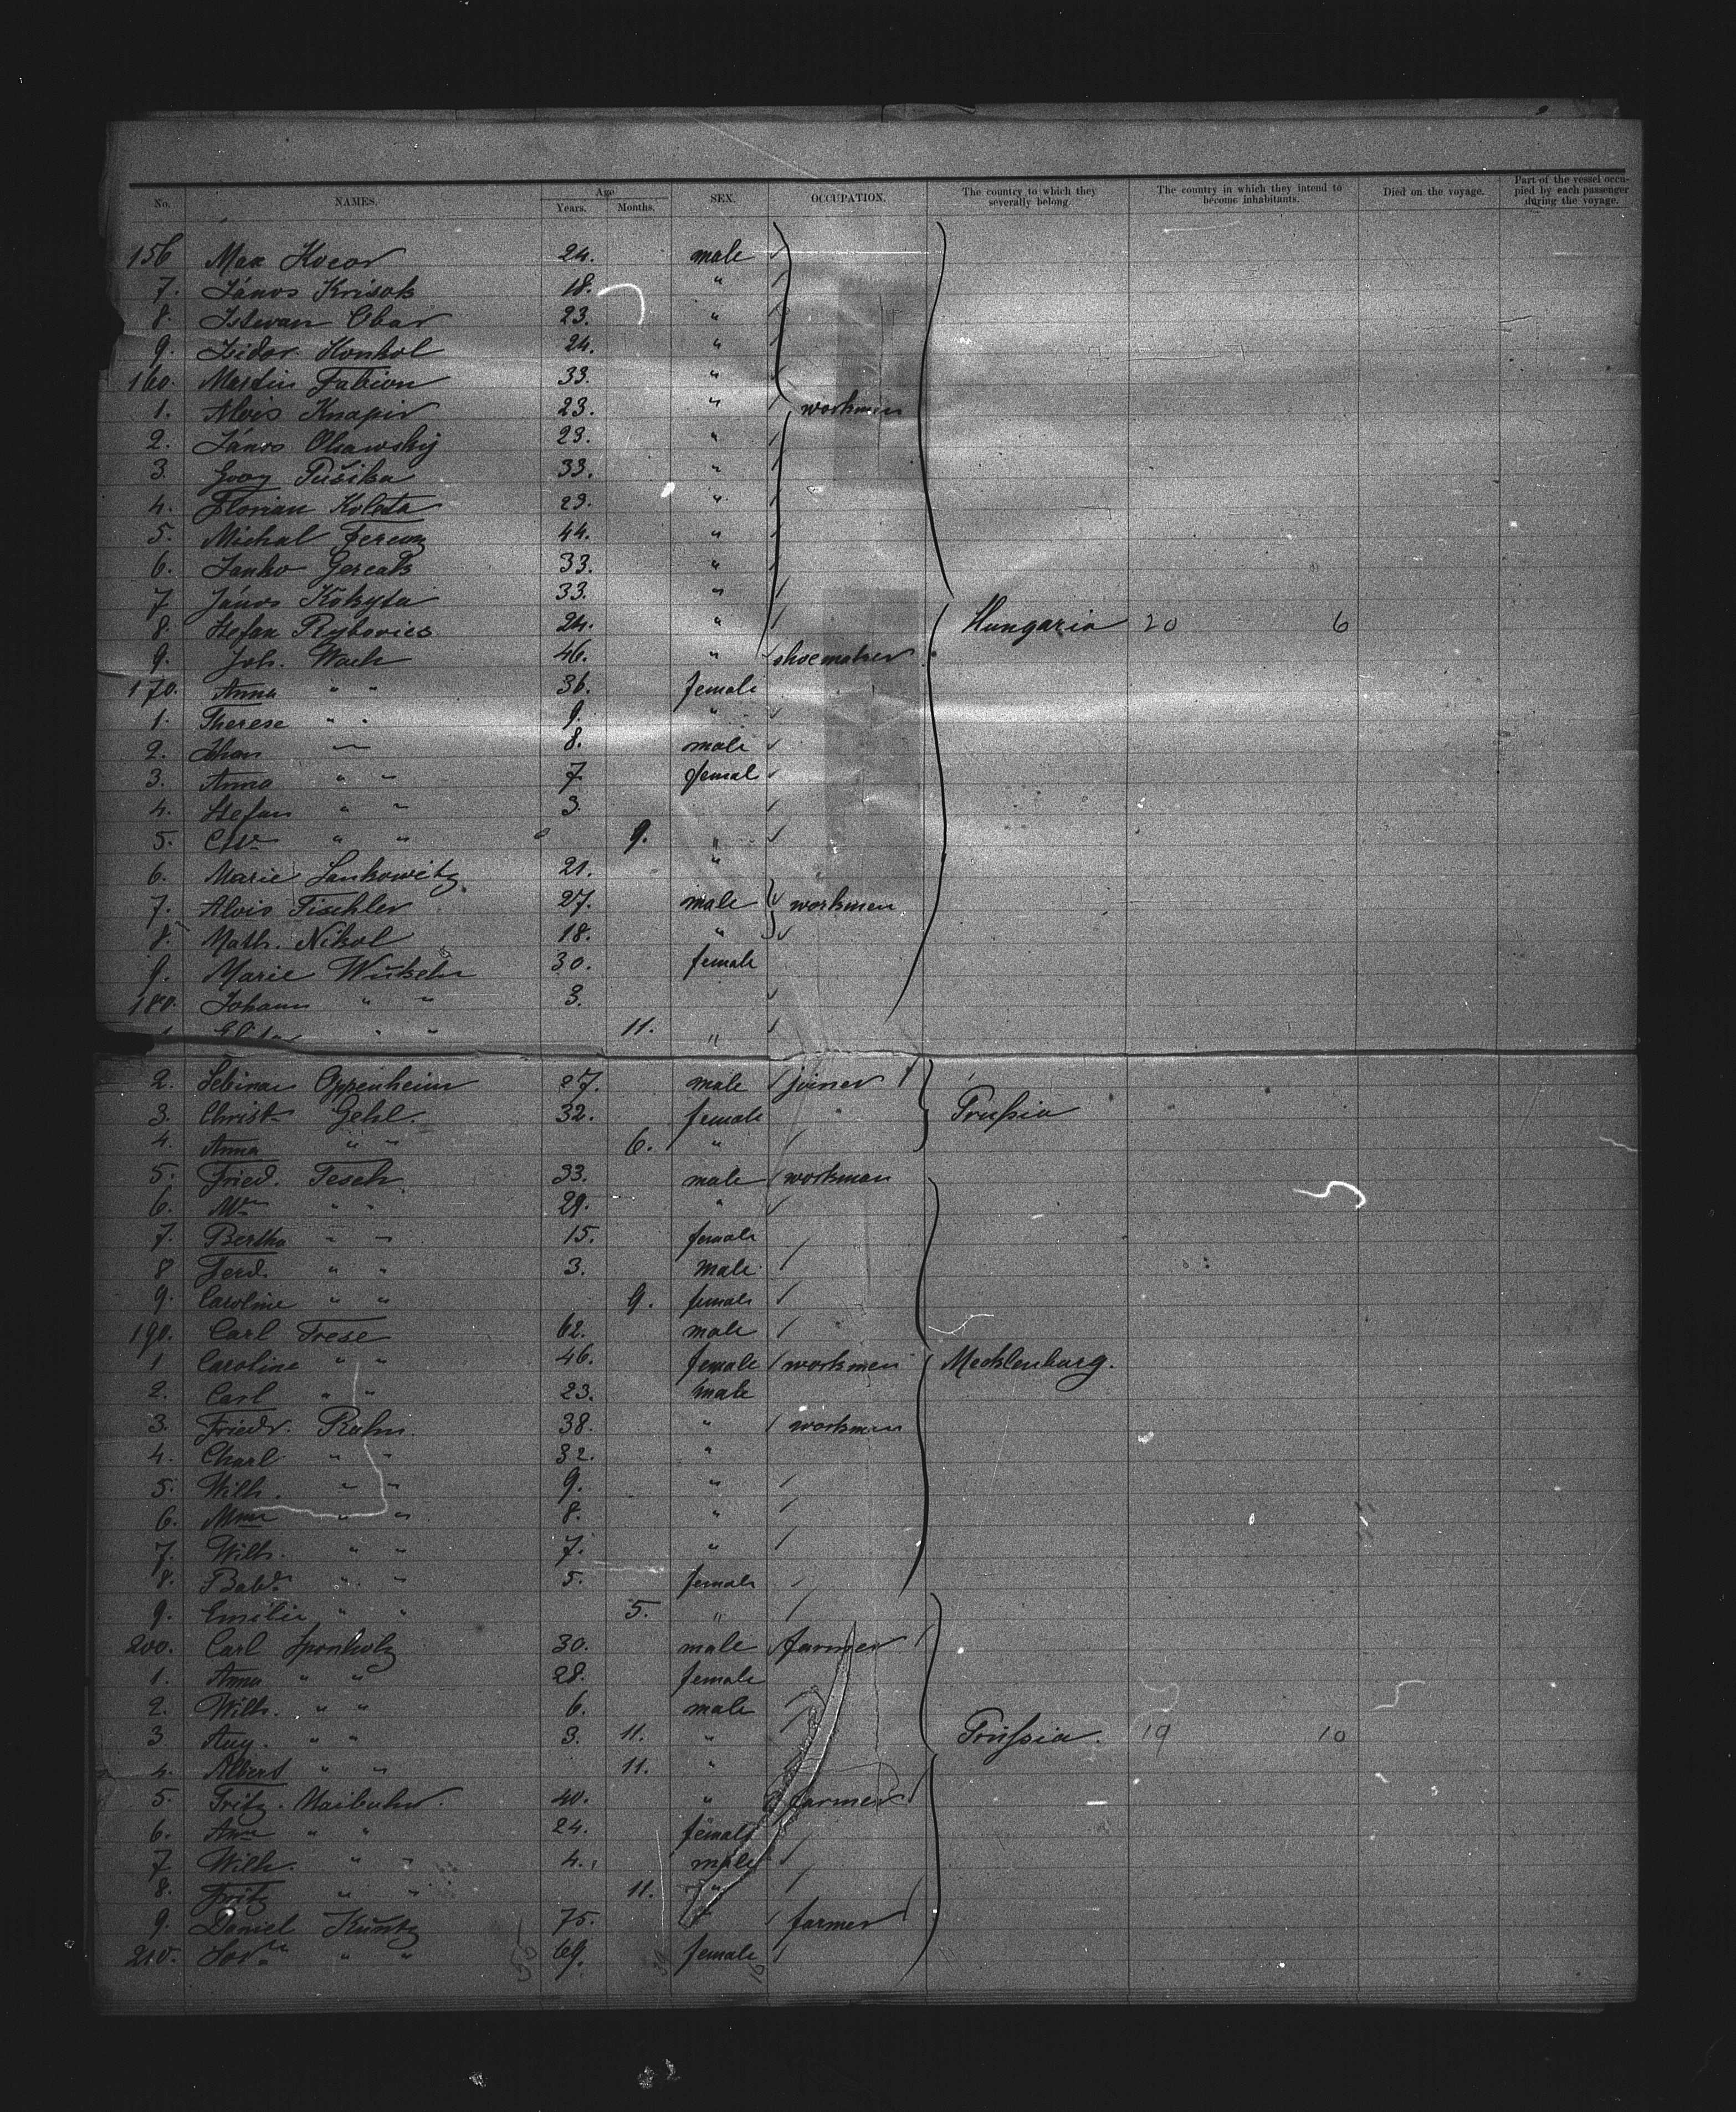 No. NAMES. Age Years. Months. SEX. OCCUPATION. The country to which they severally belong. The country in which they intend to become inhabitants. Died on the voyage. Part of the vessel occupied by each passenger during the voyage.
156 Max Kocor 24. male
7. János Krisak 18. "
8. Istwan Obar 23. "
9. Isidor Konkol 24. "
160. Martin Fabian 33. "
1. Alois Knapir 23. " workmen
2. János Olsawskÿ 23. "
3. 33. "
4. Florian Koleta 23. "
5. Michal 44. "
6. Janko 33. "
7 János Kokyta 33. "
8. Stefan Rybovics 24. " Hungaria 20 6
9. Joh. Wach 46. " shoemaker
170. Anna " " 36. female
1. Therese " " 9. "
2. Johan " 8. male
3. Anna " " 7. femal
4. Stefan " " 3.
5. " " 9. "
6. Marie Jankowitz 21. "
7. Alois Tischler 27. male workmen
8. Math. Nikol 18. "
9. Marie 30. female
180. Johann " " 3.
" " 11. "
2. Oppenheim 27. male joiner
3. Christ. Gehl. 32. female Prussia
4. Anna " " 6. "
5. Fried. Tesch 33. male workman
6. " " 29. "
7. Bertha " " 15. female
8 Ferd. " " 3. male
9. Caroline " " 9. female
190. Carl Trese 62. male
1 Caroline " " 46. female workmen Mecklenburg.
2. Carl " " 23. male
3. Friedr. Rahn. 38. " workmen
4. Charl " " 32. "
5. Wilh. " " 9. "
6. " " 8. "
7. Wilh. " " 7. "
8. " " 5. female
9. Emilie " " 5. "
200. Carl Sponholz 30. male farmer
1. Anna " " 28. female
2. Wilh. " " 6. male
3 Aug. " " 3. 11. " Prussia. 19 10
4. Albert " " 11. "
5. Fritz. Maibuhr. 40. " farmer
6. " " 24. female
7 Wilh. " " 4. male
8. Fritz " " 11. "
9. Daniel Kuntz 75. farmer
210. " " 69. female